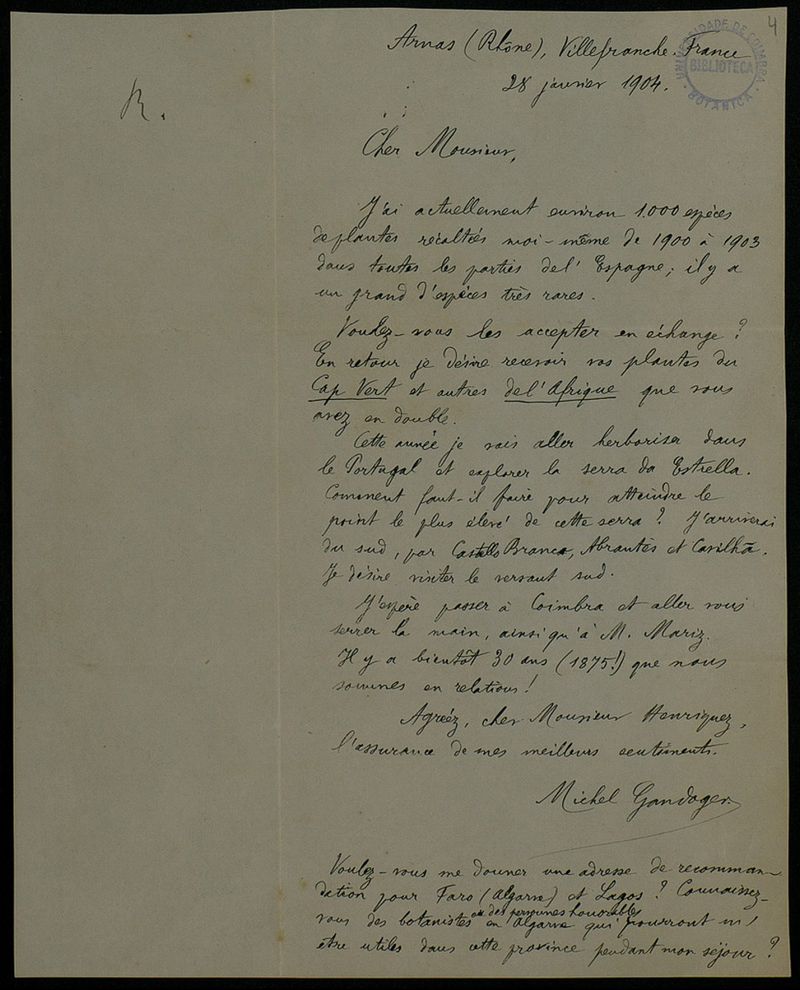 4
Arnas (Rhône), Villefranche. France
28 janvier 1904.
UNIVERSIDADE DE COIMBRA
BIBLIOTECA
BOTANICA
R.
Cher Monsieur,
J'ai actuellement environ 1.000 espèces
de plantes récoltées moi-même de 1900 à 1903
dans toutes les parties de l'Espagne; il y a
un grand d'espèces très rares.
Voulez-vous les accepter en échange?
En retour je désire recevoir vos plantes du
Cap Vert et autres de l'Afrique que vous
avez en double.
Cette année je vais aller herboriser dans
le Portugal et explorer la serra da Estrella.
Comment faut-il faire pour atteindre le
point le plus élevé de cette serra? J'arriverai
du sud, par Castello Branco, Abrantès et Cavilhã.
Je désire visiter le versant sud.
J'espère passer à Coimbra et aller vous
serrer la main, ainsi qu'à M. Mariz.
Il y a bientôt 30 ans (1875!) que nous
sommes en relations!
Agréez, cher Monsieur Henriquez,
l'assurance de mes meilleurs sentiments.
Michel Gandoger
Voulez-vous me donner une adresse de recomman-
dation pour Faro (Algarve) et Lagos? Connaissez-
ou des personnes honorables
vous des botanistes en Algarve qui pourront m'
être utiles dans cette province pendant mon séjour?